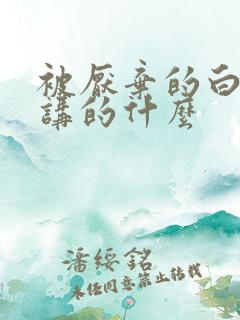 被厭棄的白
講的什麼
潘綏銘
未经同意禁止转载